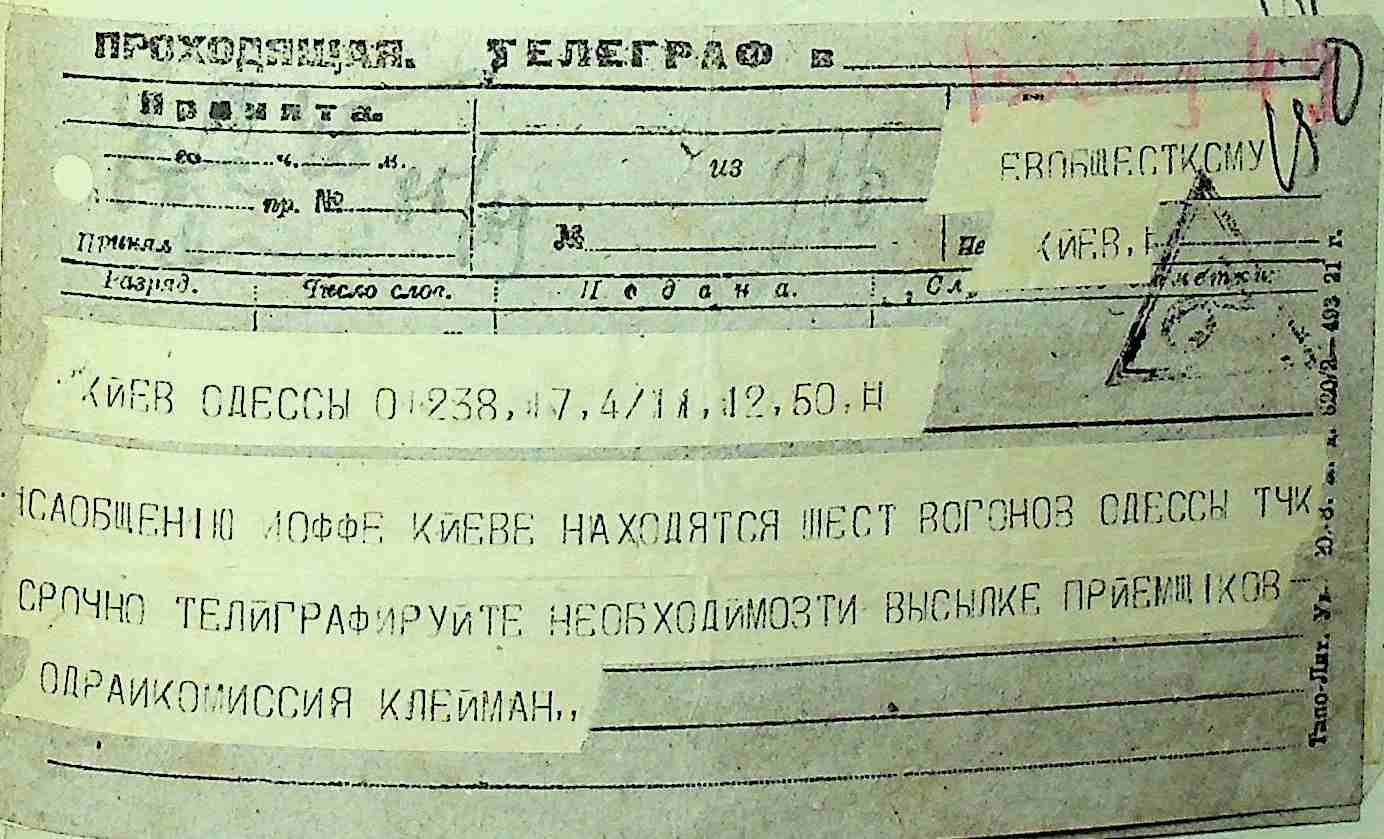 ПРОХОДЯЩАЯ. ТЕЛЕГРАФ в
Принята.
го ч. м.
из
ЕВОБЩЕСТКСМУ
пр. №
Принял
№
КИЕВ,
Разряд. Число слов. Подана.
КИЕВ ОДЕССЫ 0 238, 17, 4/11, 12, 50, Н
ІСАОБЩЕНІЮ ИОФФЕ КИЕВЕ НАХОДЯТСЯ ШЕСТ ВОГОНОВ ОДЕССЫ ТЧК
СРОЧНО ТЕЛИГРАФИРУЙТЕ НЕОБХОДИМОЗТИ ВЫСЫЛКЕ ПРИЕМЩІКОВ
ОДРАИКОМИССИЯ КЛЕЙМАН,,
Типо-Лит. Ув. Ю.-З. ж. д. 620/2—493 21 г.